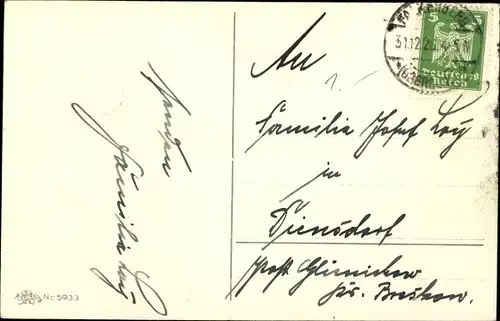 senden
Familie Loy
Nr. 5933
31.12.26
5 5
Deutsches
Reich
An
1.
Familie Josef Loy
in
Diensdorf
Post Glienickow
Krs. Beeskow.